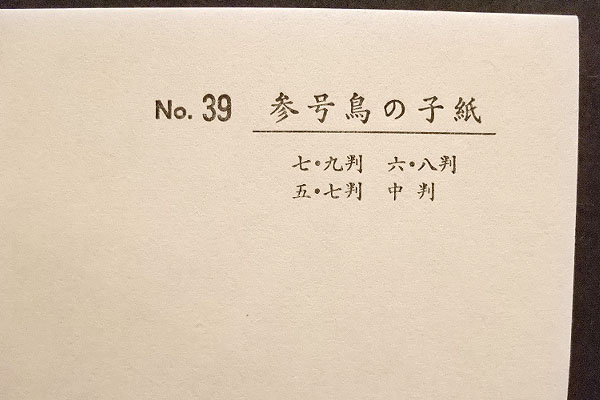 No. 39 参号鳥の子紙
七・九判 六・八判
五・七判 中判